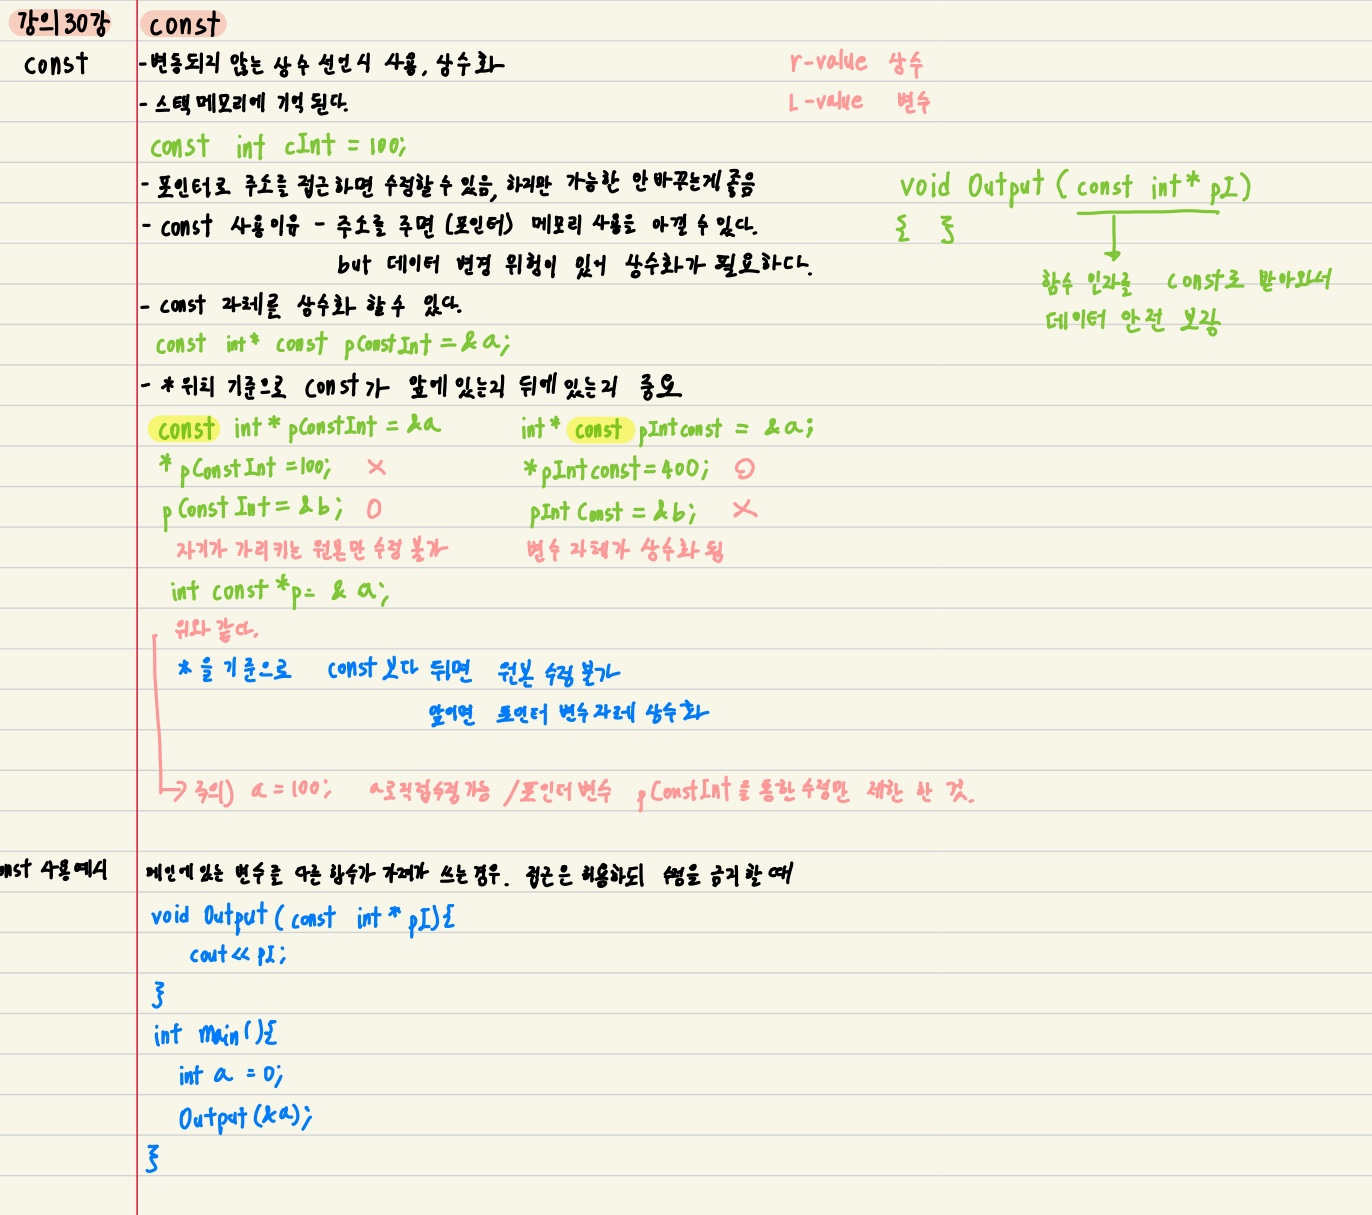 강의30강
const
const
-변동되지 않는 상수 선언시 사용, 상수화
r-value 상수
- 스택메모리에 기억 된다.
L-value 변수
const int cInt = 100;
- 포인터로 주소를 접근하면 수정할 수 있음, 하지만 가능한 안 바꾸는게 좋음
void Output (const int* pI)
{ }
- const 사용이유 - 주소를 주면 (포인터) 메모리 사용을 아낄 수 있다.
but 데이터 변경 위험이 있어 상수화가 필요하다.
함수 인자를 const로 받아와서
데이터 안전 보장
- const 자체를 상수화 할 수 있다.
const int* const pConstInt = &a;
- * 위치 기준으로 const가 앞에 있는지 뒤에 있는지 중요
const int* pConstInt = &a
int* const pIntconst = &a;
*pConstInt =100; X
*pIntconst=400; O
pConstInt= &b; O
pIntConst = &b; X
자기가 가리키는 원본만 수정 불가
변수 자체가 상수화 됨
int const *p= & a;
위와 같다.
*을 기준으로 const보다 뒤면 원본 수정 불가
앞이면 포인터 변수자체 상수화
→ 주의) a = 100; a로직접수정가능 /포인터변수 pConstInt을 통한 수정만 제한 한 것.
nst 사용예시
메인에 있는 변수를 다른 함수가 가져가 쓰는 경우. 접근은 허용하되 수정을 금지 할 때
void Output (const int* pI){
cout<< pI;
}
int main(){
int a = 0;
Output(&a);
}